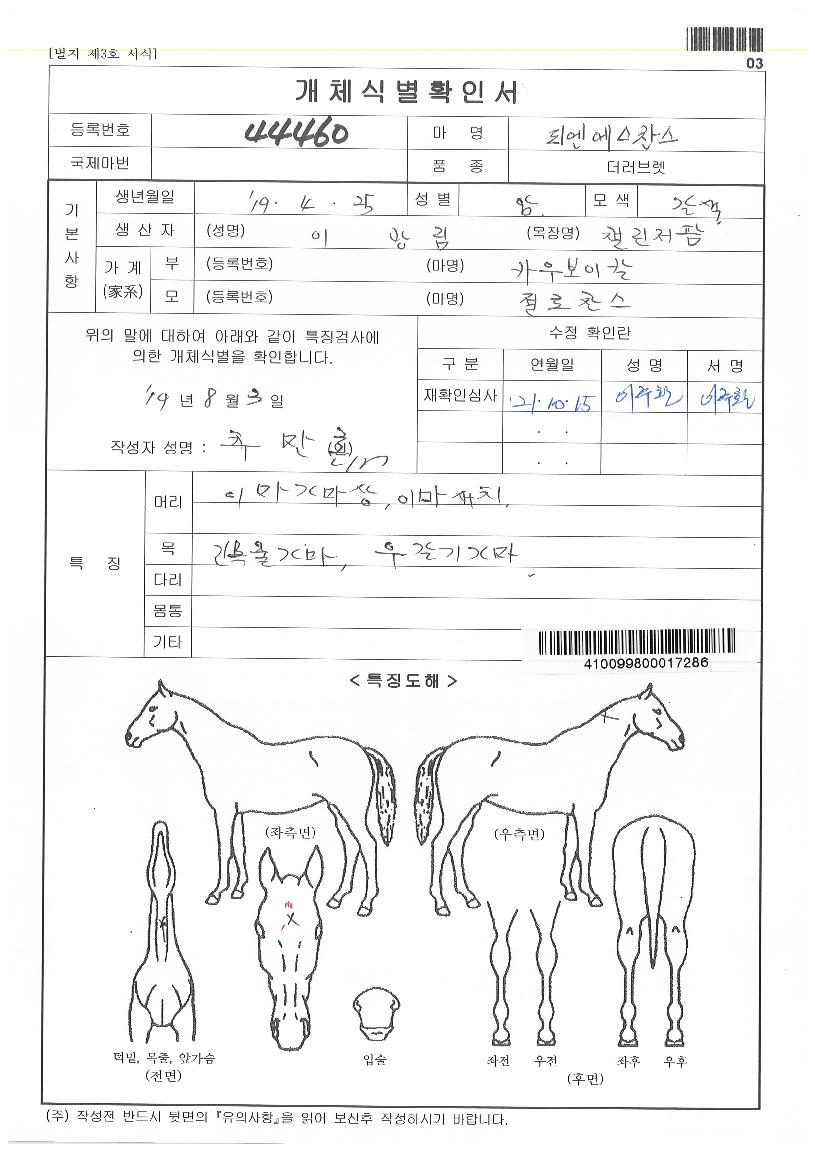 [별지 제3호 서식]
03
개체식별확인서
등록번호 44460 마 명 티엔에스찬스
국제마번 품 종 더러브렛
기본사항
생년월일 '19. 4. 25 성별 암 모색 갈색
생산자 (성명) 이 방림 (목장명) 챌린저팜
가계 (家系) 부 (등록번호) (마명) 카우보이칼
모 (등록번호) (마명) 절로찬스
위의 말에 대하여 아래와 같이 특징검사에
의한 개체식별을 확인합니다.
'19 년 8 월 3 일
작성자 성명 : 추 만 (인)
수정 확인란
구 분 연월일 성 명 서 명
재확인심사 '21.10.15
. .
. .
특 징
머리 이마가마상, 이마
목 가마, 우 가마
다리
몸통
기타
410099800017286
<특징도해>
(좌측면) (우측면)
턱밑, 목줄, 앞가슴 입술 좌전 우전 좌후 우후
(전면) (후면)
(주) 작성전 반드시 뒷면의 『유의사항』을 읽어 보신후 작성하시기 바랍니다.